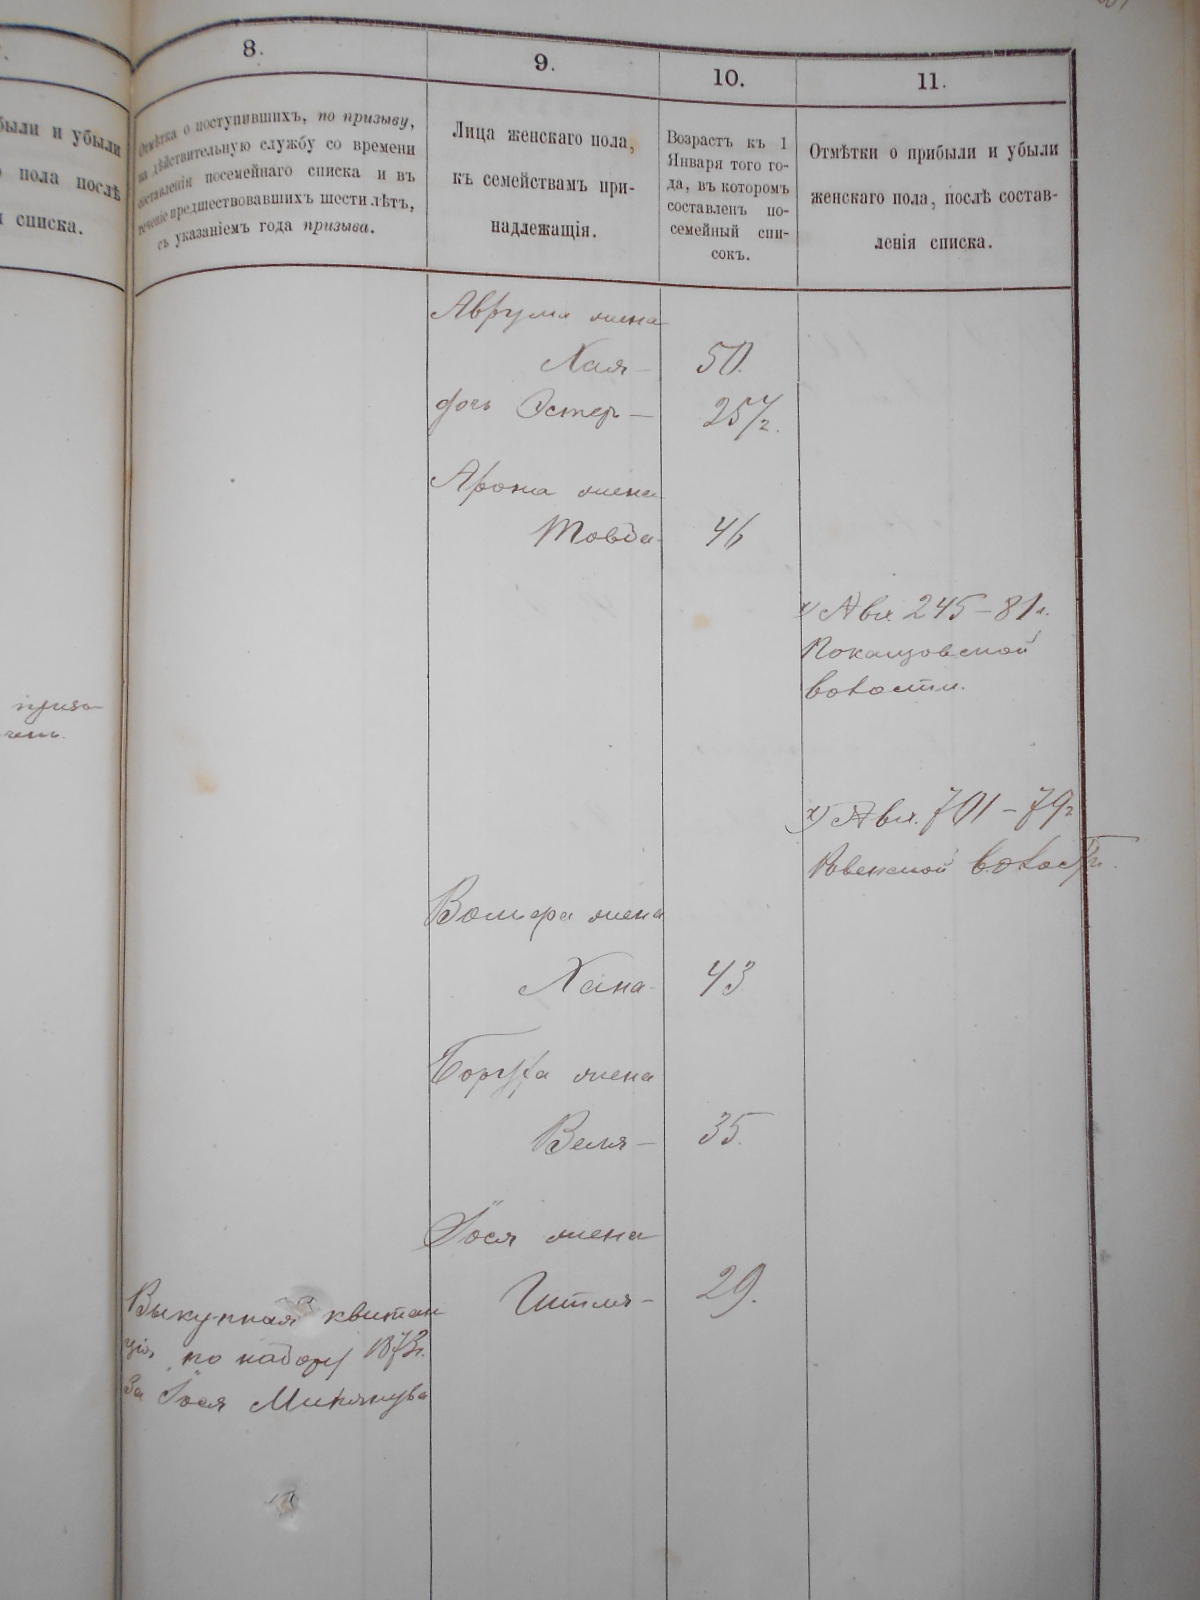 8.
9.
10.
11.
были и убыли
пола послѣ
списка.
Отмѣтка о поступившихъ, по призыву,
на дѣйствительную службу со времени
составленія посемейнаго списка и въ
теченіе предшествовавшихъ шести лѣтъ,
съ указаніемъ года призыва.
Лица женскаго пола,
къ семействамъ при-
надлежащія.
Возрастъ къ 1
Января того го-
да, въ которомъ
составленъ по-
семейный спи-
сокъ.
Отмѣтки о прибыли и убыли
женскаго пола, послѣ состав-
ленія списка.
Аврума жена
Хая — 50.
дочь Эстер —
Арона жена
Товба 46
х) Явл. 245 – 81 г.
волости.
х) Явл. 701 – 79 г
Ровенской волости.
жена
Хана 43
Боруха жена
Веля — 35.
Іося жена
Гитля — 29.
Выкупная квитан
ція по набору 1873 г.
За Іося